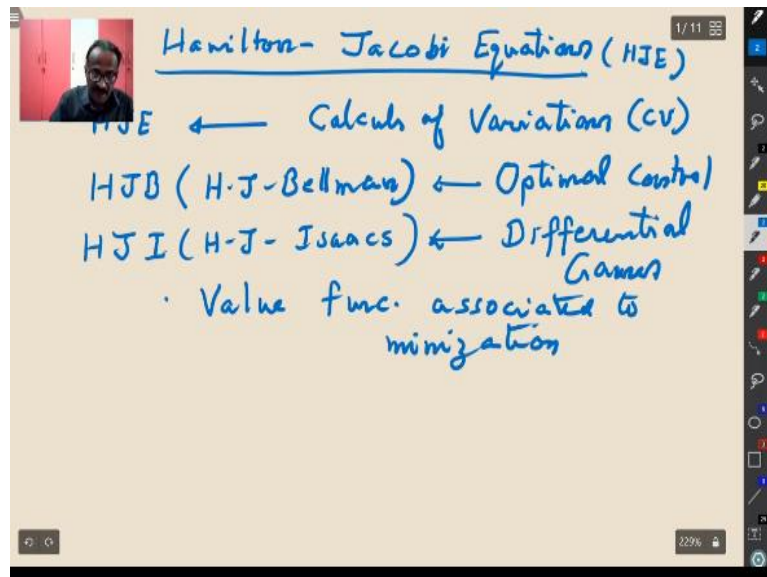 1/11
Hamilton- Jacobi Equations (HJE)
HJE ← Calculs of Variations (CV)
HJB (H.J-Bellman) ← Optimal Control
HJI (H-J- Isaacs) ← Differential
Games
. Value func. associated to
mimization
229%